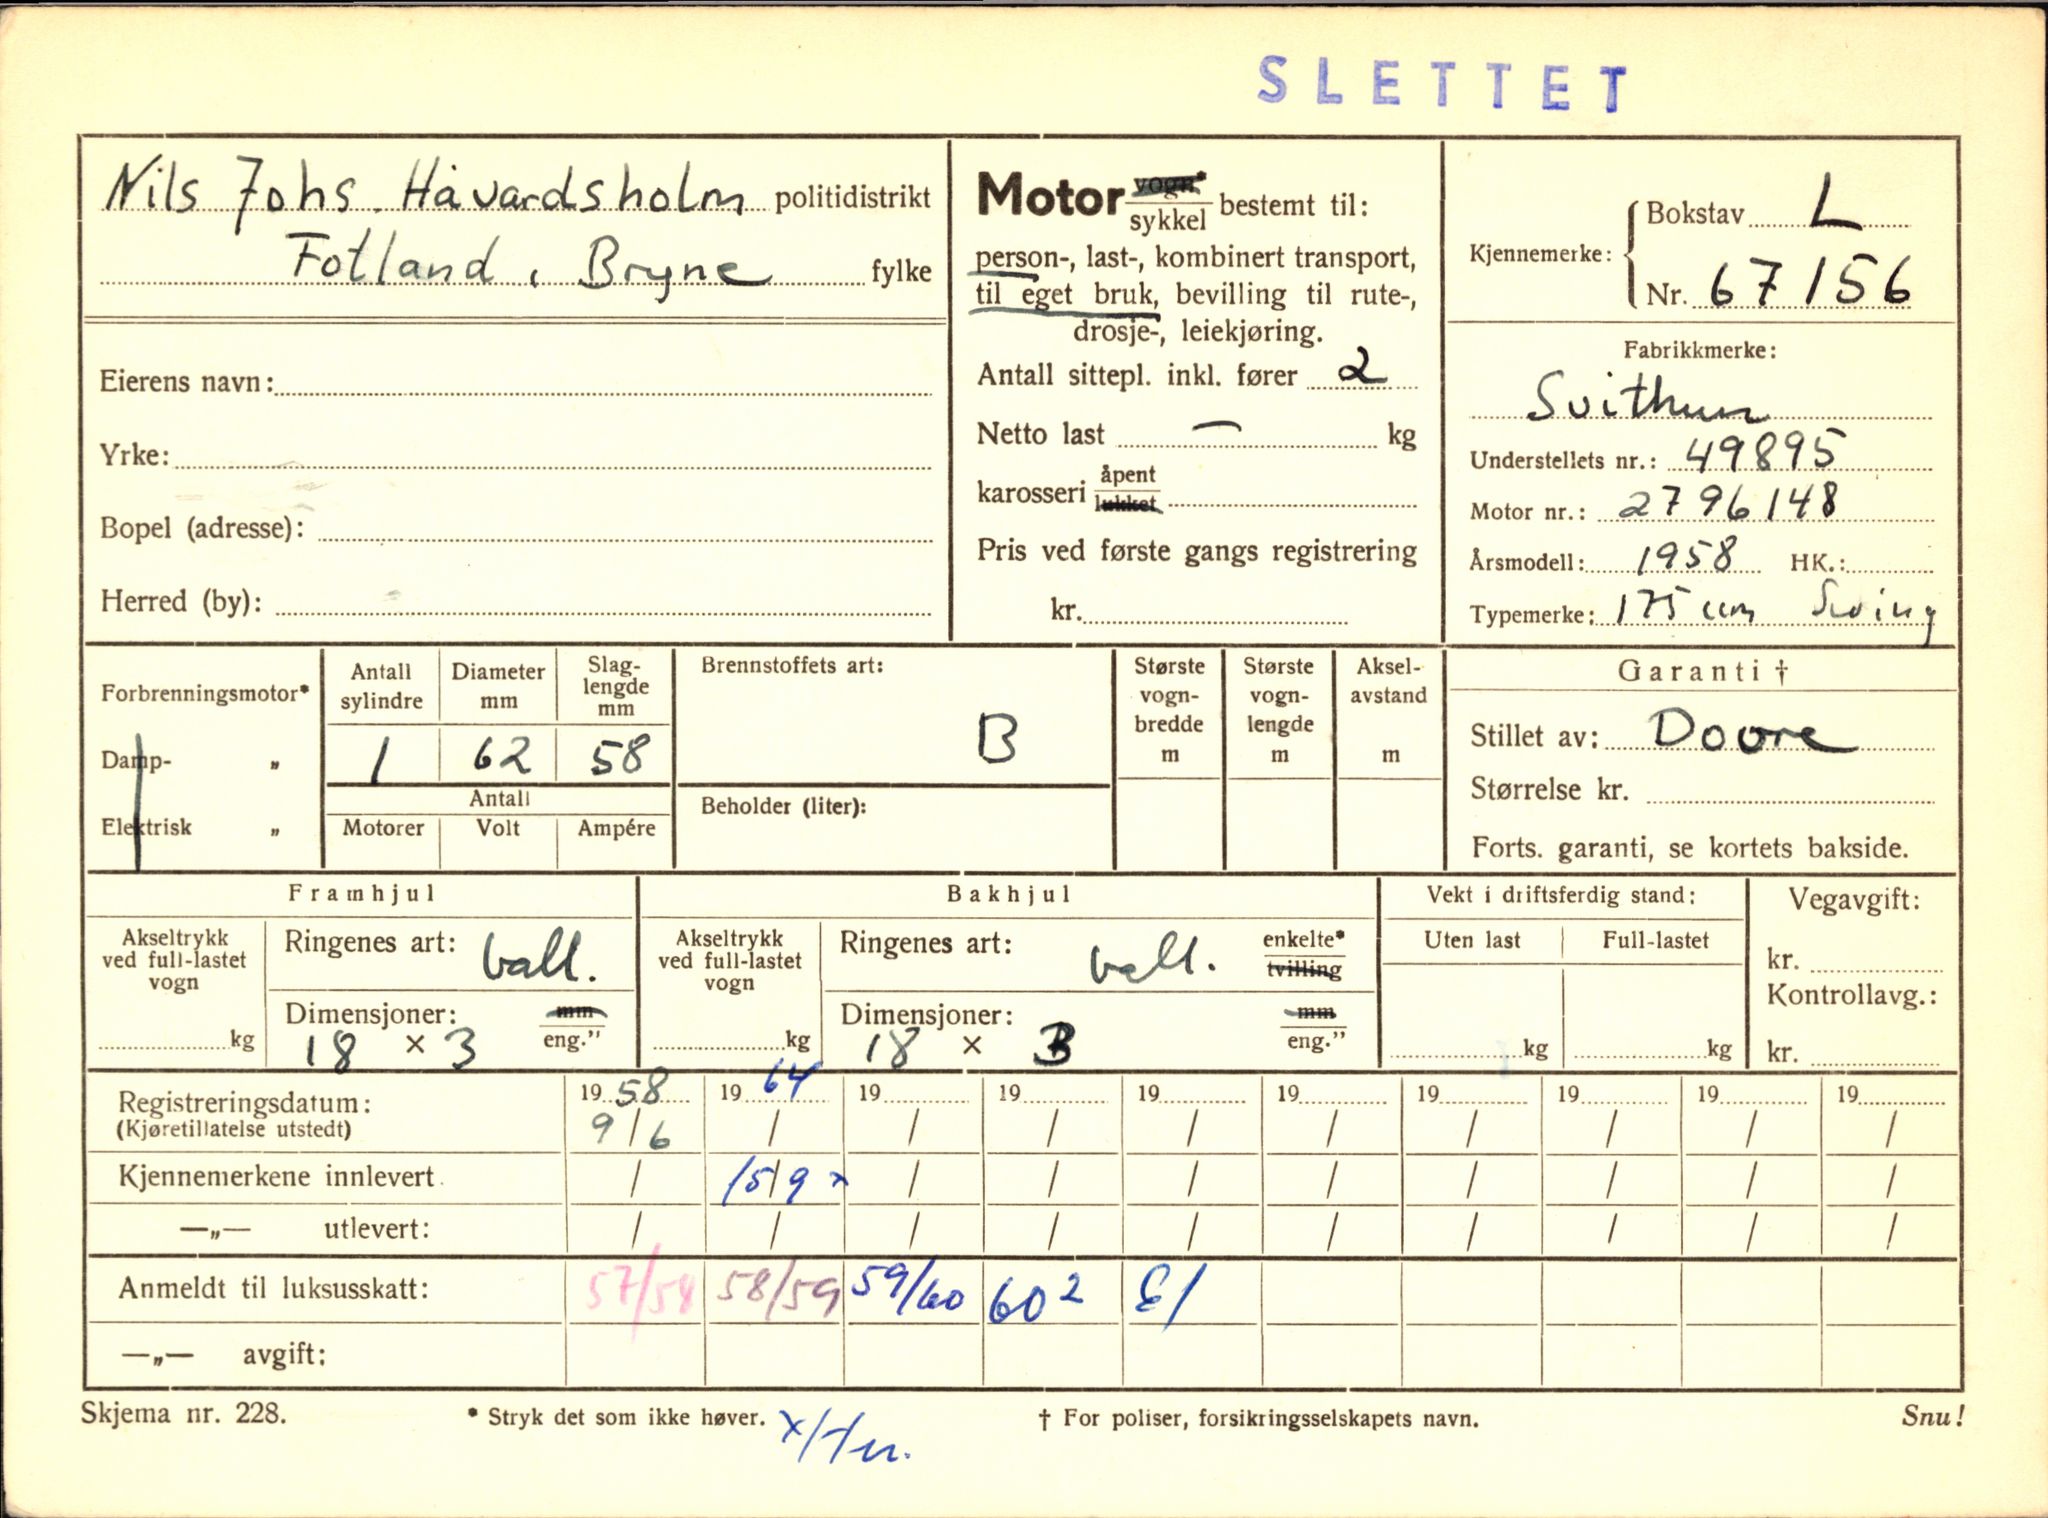 SLETTET
Nils Johs. Håvardsholm politidistrikt
Fotland, Bryne fylke
Eierens navn:
Yrke:
Bopel (adresse):
Herred (by):
Motor vogn* / sykkel bestemt til:
person-, last-, kombinert transport,
til eget bruk, bevilling til rute-,
drosje-, leiekjøring.
Antall sittepl. inkl. fører 2
Netto last — kg
karosseri åpent / lukket
Pris ved første gangs registrering
kr.
Kjennemerke: { Bokstav L
Nr. 67156
Fabrikkmerke:
Svithun
Understellets nr.: 49895
Motor nr.: 2796148
Årsmodell: 1958 HK.:
Typemerke: 175 ccm Swing
Forbrenningsmotor*
Damp- „
Elektrisk „
Antall sylindre
Diameter mm
Slag-
lengde
mm
1 62 58
Antall
Motorer Volt Ampére
Brennstoffets art:
B
Beholder (liter):
Største
vogn-
bredde
m
Største
vogn-
lengde
m
Aksel-
avstand
m
Garanti †
Stillet av: Dovre
Størrelse kr.
Forts. garanti, se kortets bakside.
Framhjul
Akseltrykk
ved full-lastet
vogn
kg
Ringenes art: ball.
Dimensjoner: mm
18 × 3 eng.”
Bakhjul
Akseltrykk
ved full-lastet
vogn
kg
Ringenes art: ball. enkelte*
tvilling
Dimensjoner: mm
18 × 3 eng.”
Vekt i driftsferdig stand:
Uten last Full-lastet
kg kg
Vegavgift:
kr.
Kontrollavg.:
kr.
Registreringsdatum: 19 58 19 64 19 19 19 19 19 19 19 19
(Kjøretillatelse utstedt) 9/6 / / / / / / / / /
Kjennemerkene innlevert / 15/9 × / / / / / / / /
—„— utlevert: / / / / / / / / / /
Anmeldt til luksusskatt: 57/58 58/59 59/60 60² 61
—„— avgift:
Skjema nr. 228. * Stryk det som ikke høver. † For poliser, forsikringsselskapets navn. Snu!